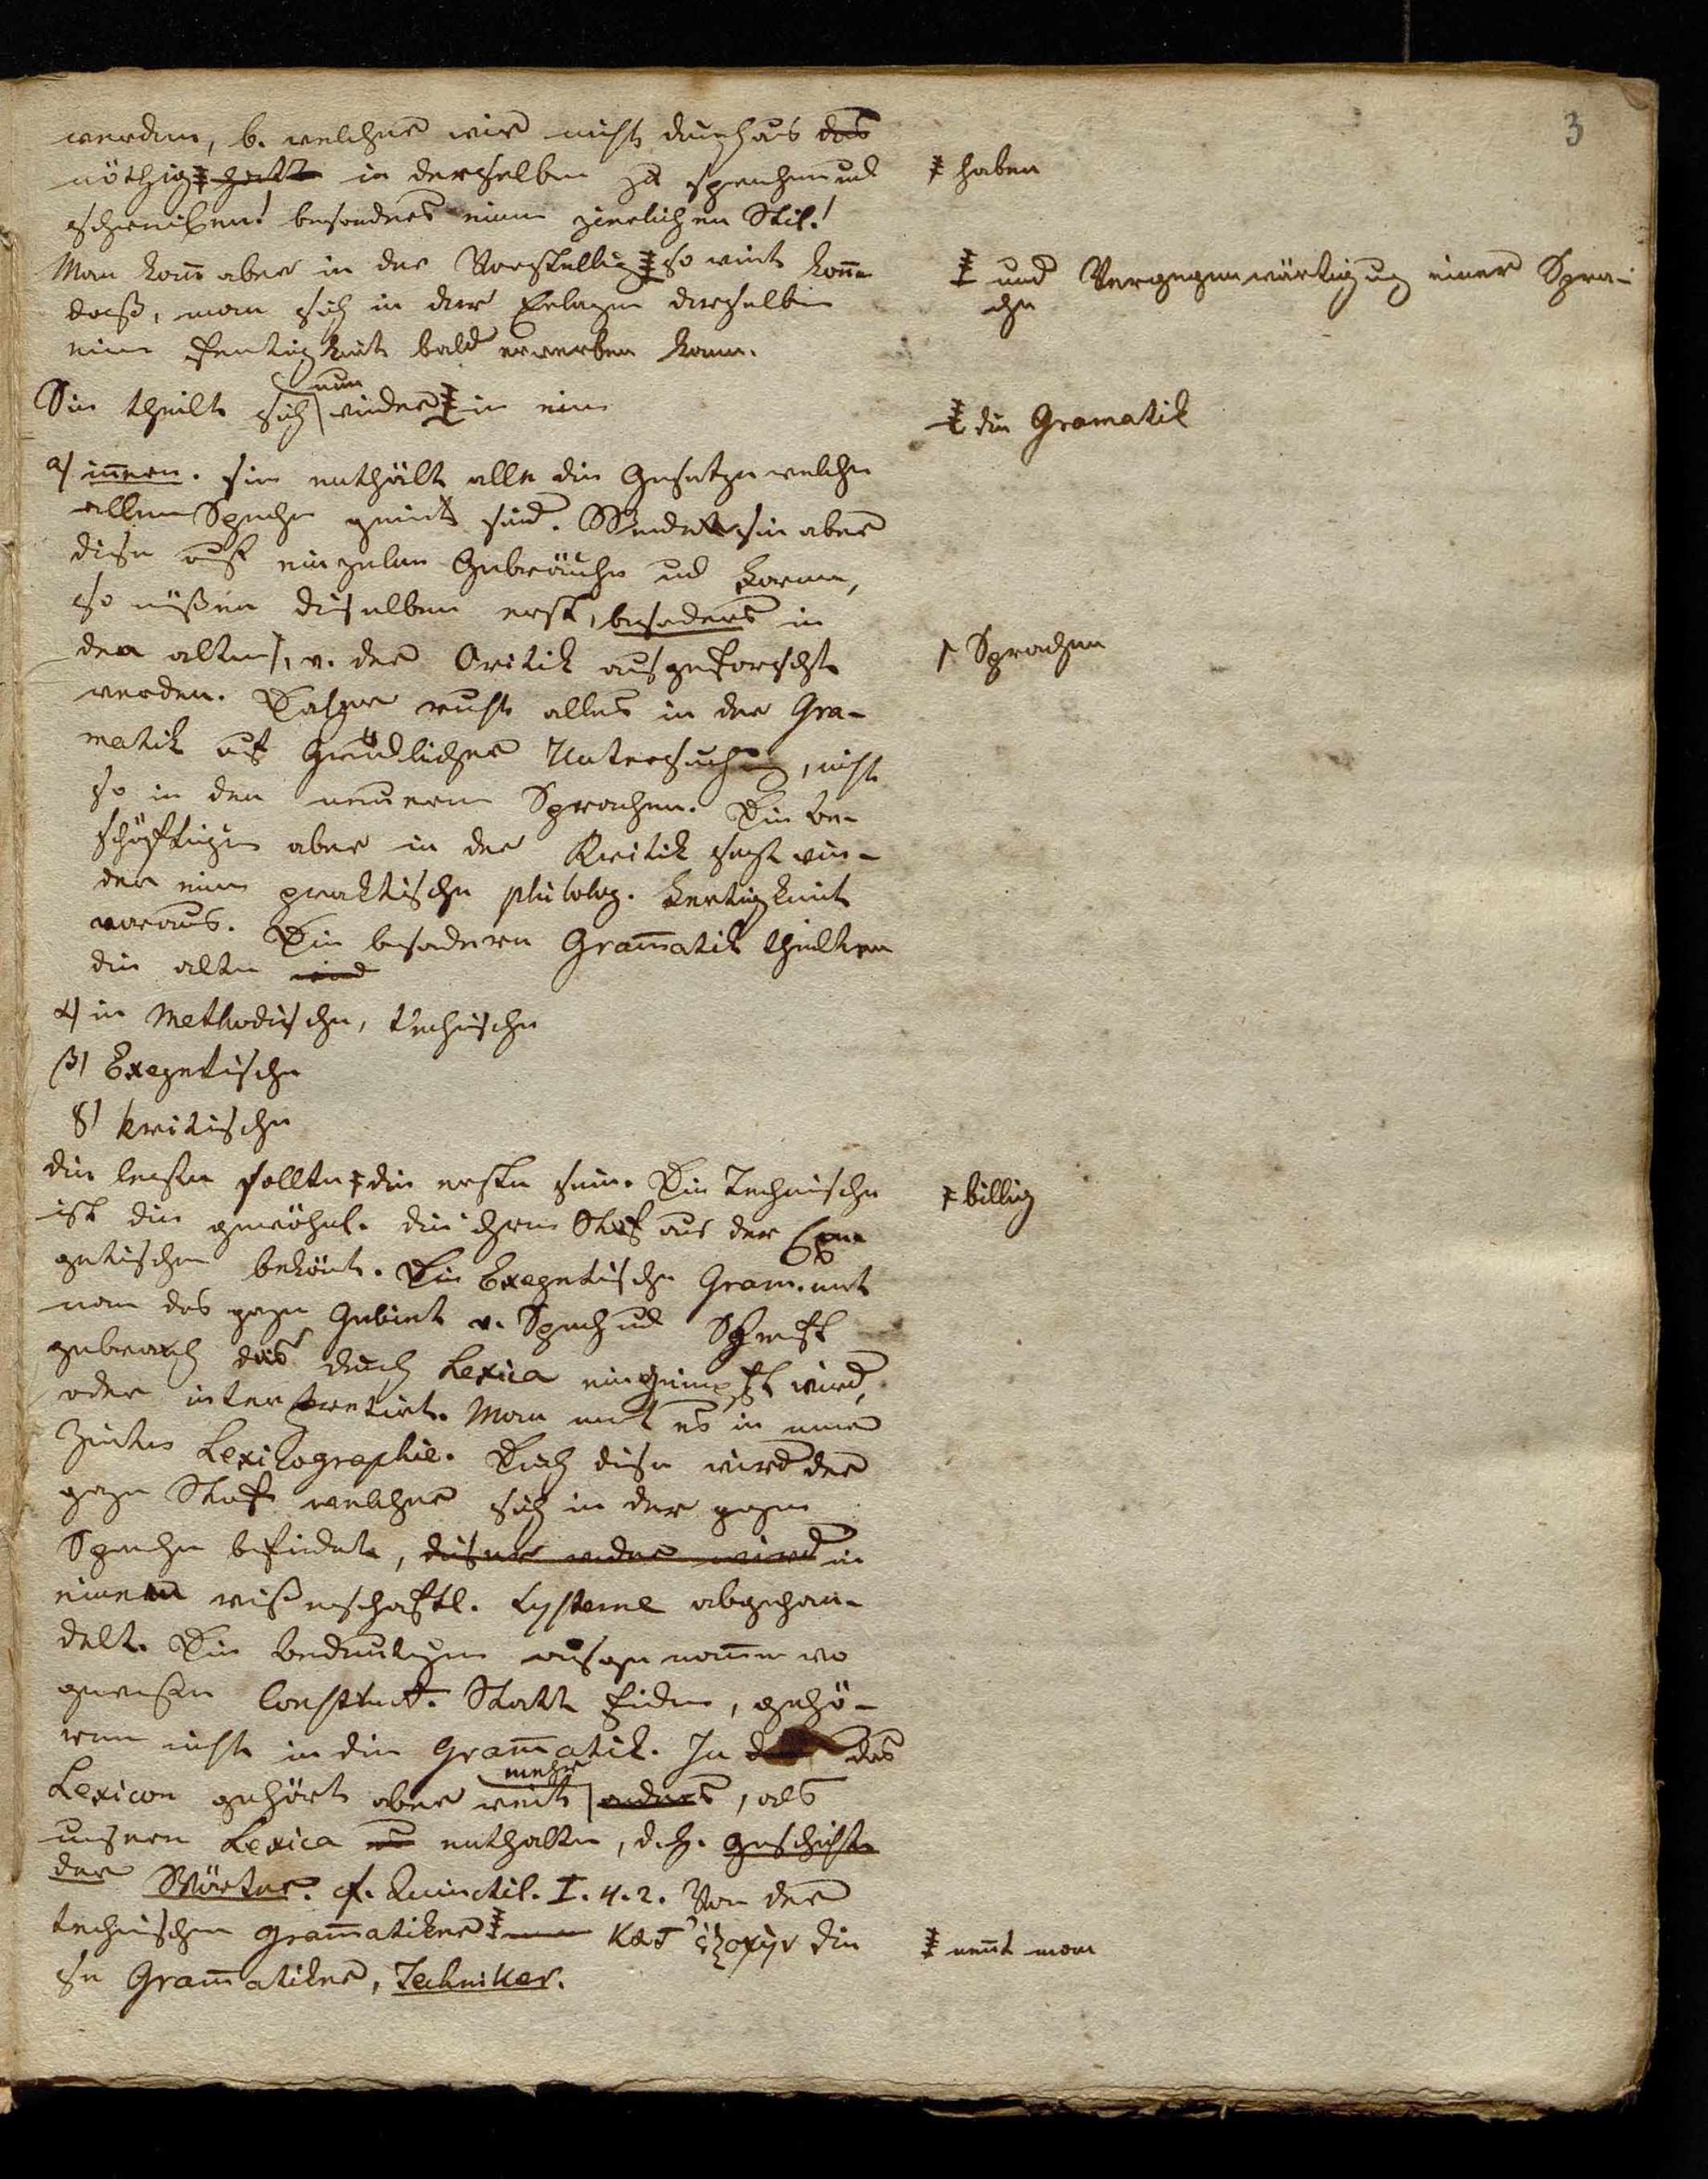 3
werden, b. welcher wir nicht durchaus das
nöthig hatten in derselben zu sprechen und
schreiben! besonders einen zierlichen Stil!
Man kann aber in der Vorstellung so weit komen
daß, man sich in der Erlagen derselben
eine Fertigkeit bald erwerben kann.
Sie theilt sich nun wieder in eine
a) innere. sie enthält alle die Gesetze welche
allen Sprachen gemein sind. Wendet sie aber
diese auf einzelne Gebräuche und Formen,
so müßen dieselben erst, besonders in
den alten, v. der Critik ausgeforscht
werden. Daher ruht alles in der Gra-
matik auf gründlicher Untersuchung, nicht
so in den neuern Sprachen. Die Be-
schäftigen aber in der Kritik setzt wie-
der eine praktische philolog. Fertigkeit
voraus. Die besondere Gramatik theilten
die alten
α) in Methodische, technische
β) Exegetische
γ) kritische
die letzte sollte die erste sein. Die Technische
ist die gewöhnl. die ihren Stof aus der Exe-
getischen bekömt. Die Exegetische Gram. nent
man das ganze Gebiet v. Sprach und Schrift
gebrauch das durch Lexica eingeimpft wird,
oder interpretirt. Man nent es in neuer
Zeiten Lexicographie. Durch diese wird der
ganze Stoff welcher sich in der ganzen
Sprache befindet, dieser oder wird in
einem wißenschaftl. Systeme abgehan-
delt. Die Bedeutungen ausgenomen wo
gewisse Construct. Statt finden, gehö-
ren nicht in die Gramatik. In das
Lexicon gehört aber weit mehr anders, als
unsere Lexica enthalten, d. h. Geschichte
der Wörter. cf. Quinctil. I. 4. 2. Von der
technischen Gramatiker κατ' ἐξοχὴν die
se Gramatiker, Techniker.
haben
und Vergegenwärtigung einer Spra-
che
die Gramatik
Sprachen
billig
nent man